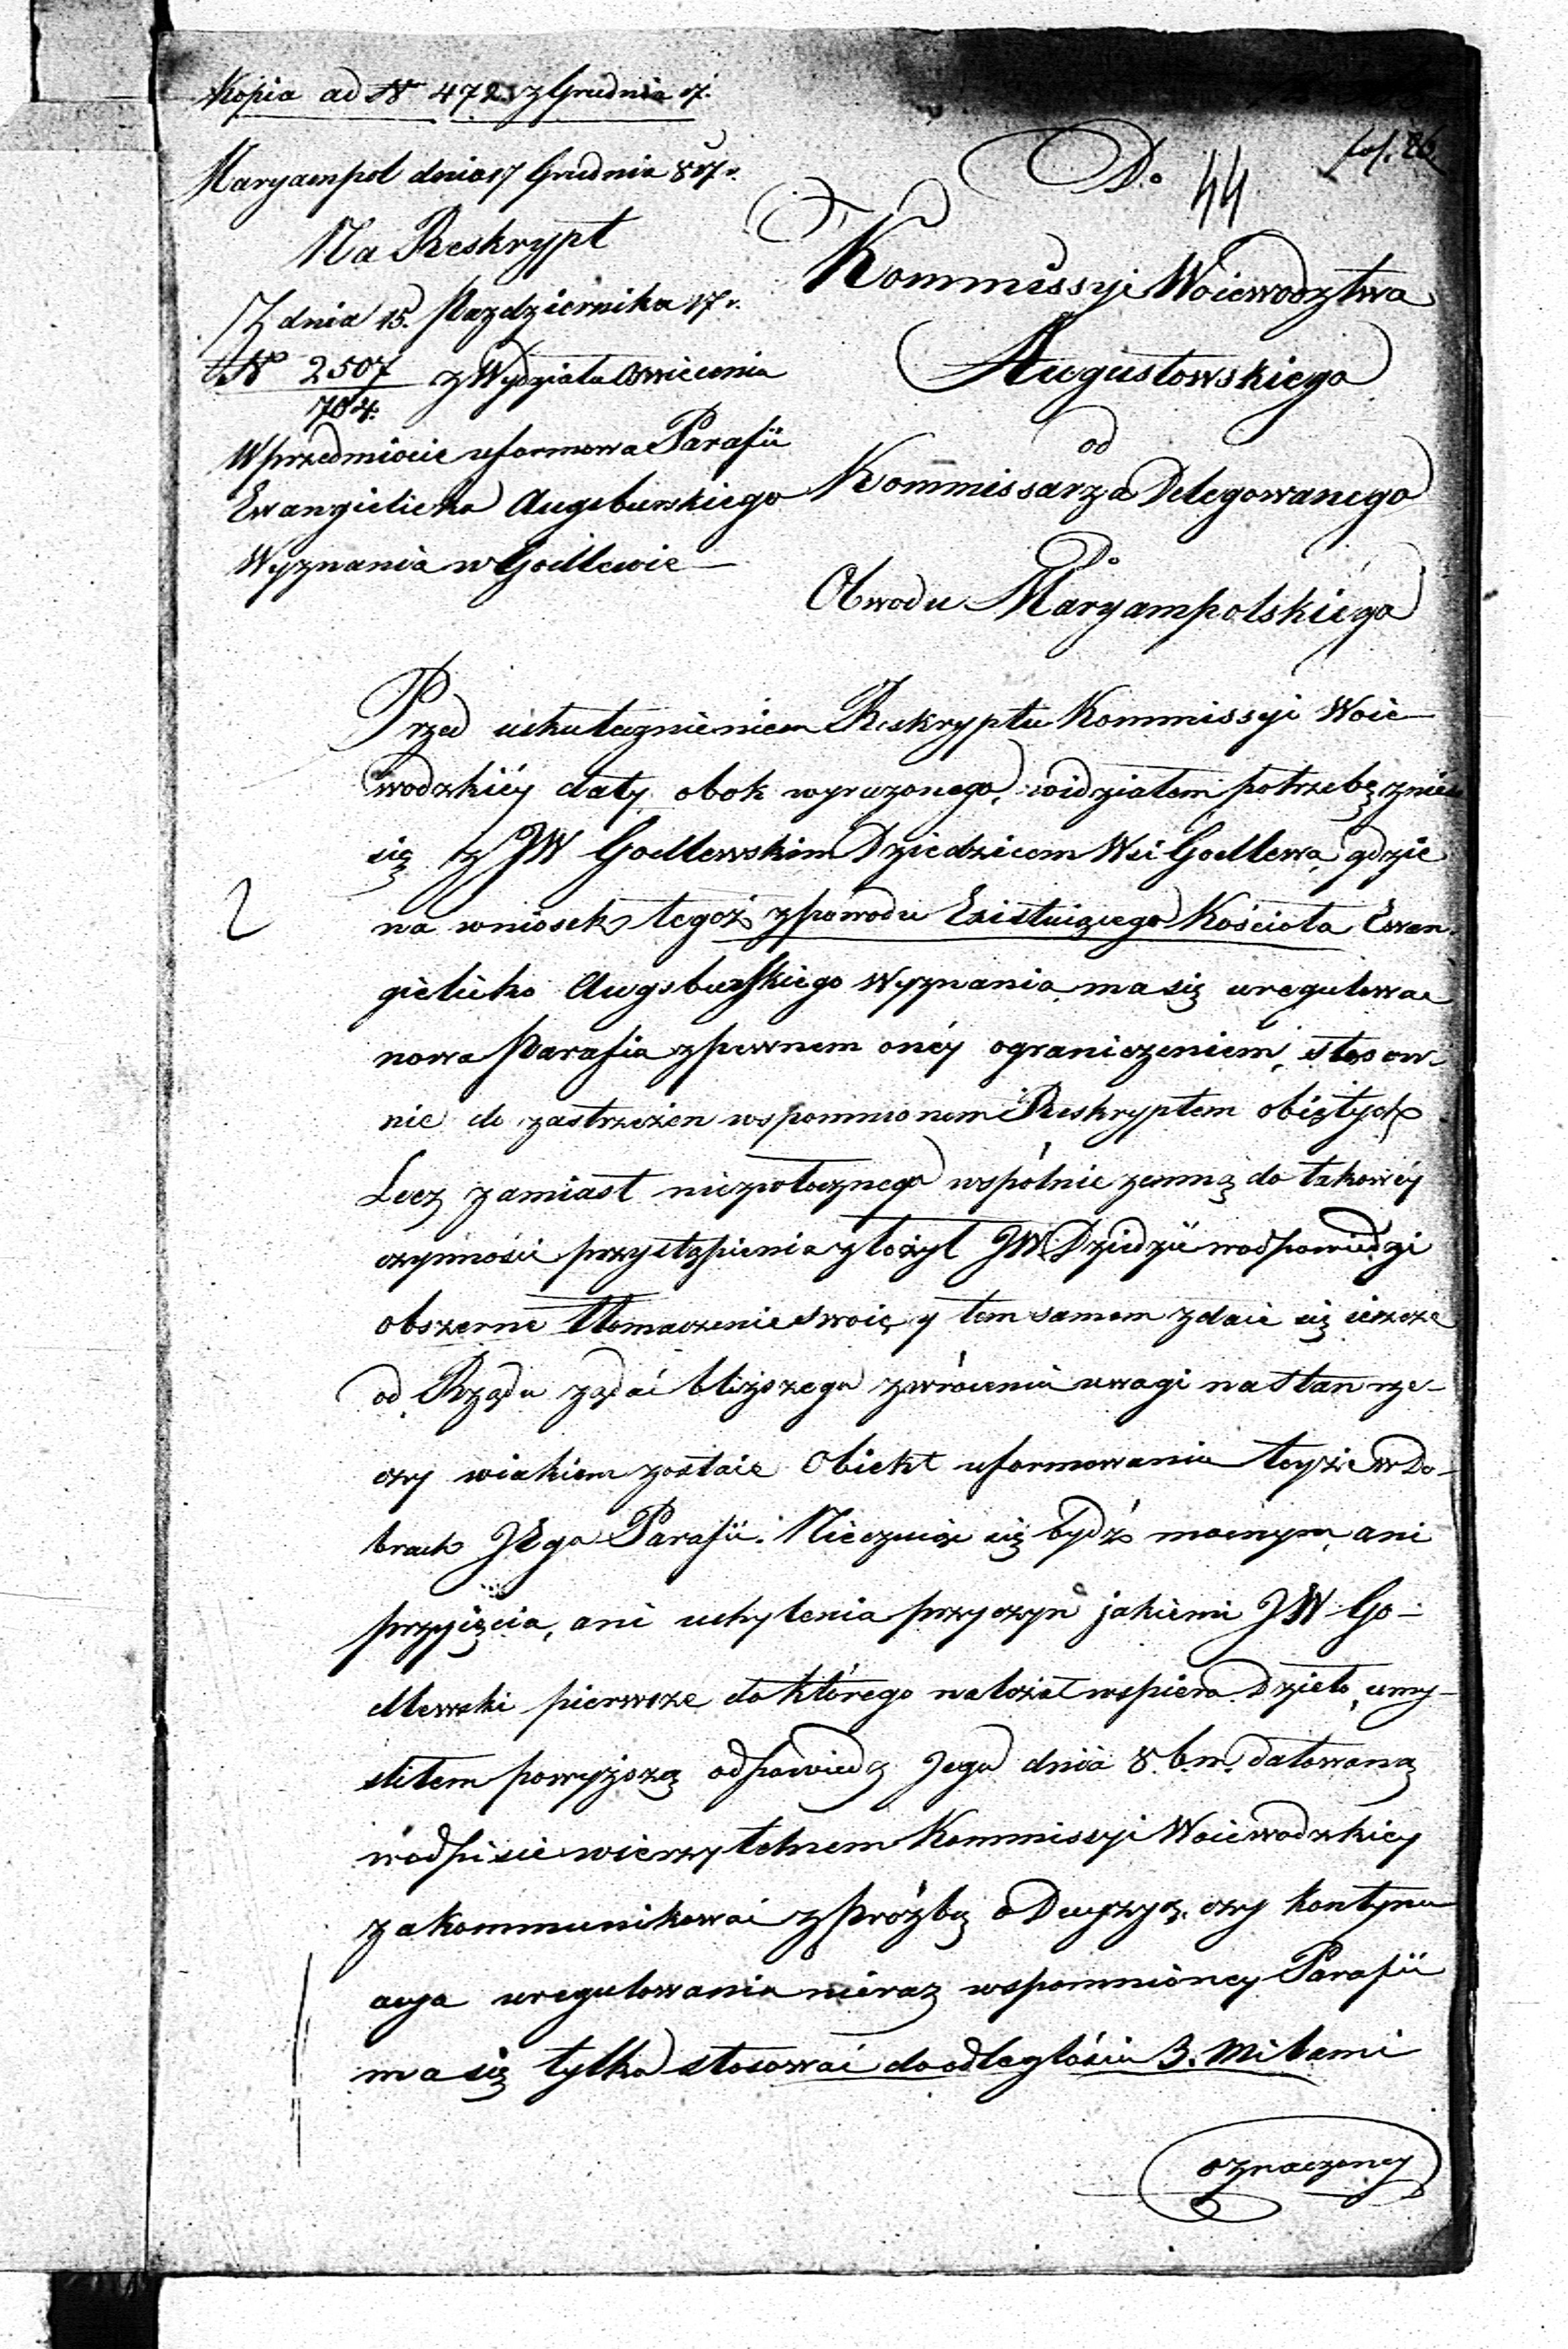 Kopia ad № 472 z Grudnia 17.
Maryampol dnia 17 Grudnia 817 r.
Na Reskrypt
Z dnia 15. Pazdziernika 17 r.
№ 2507 z Wydziału Oswiecenia
704.
W przedmiocie uformowa Parafii
Ewangielicko Augsburskiego
Wyznania w Godlewie
fol. 26
Do 44
Kommissyi Woiewodztwa
Augustowskiego
od
Kommissarza Delegowanego
Do
Obwodu Maryampolskiego
Przed uskutecznieniem Reskryptu Kommissyi Woie-
wodzkiéy daty obok wyrażonego, widziałem potrzebę
się z JW Godlewskim Dziedzicem Wsi Godlewa, gdzie
2
na wniosek tegoż z powodu Exístuiącego Kościoła Ewan-
gielicko Augsburskiego Wyznania, ma się uregulować
nowa Parafia z pewnem onéy ograniczeniem, stosow-
nie do zastrzeżen wspomnionem Reskryptem obiętych
Lecz zamiast niezwłocznego wspólnie zemną do takowéy
czynności przystąpienia złożył JW. Dziedzic w odpowiedzi
obszerne tłomaczenie swoie, y tem samem zdaie się ieszcze
od Rządu żądać bliższego zwrócenia uwagi na stan rze-
czy w iakiem zostaie Obiekt uformowania teyże w Do-
brach JEgo Parafii. Nieczuiąc się bydź mocnym, ani
przyięcia, ani uchylenia przyczyn jakiemi JW Go-
dlewski pierwsze do którego należał wspiera Dzieło, umy-
sliłem powyższą odpowiedz Jego dnia 8. b. m. datowaną
w odpisie wierzytelnem Kommissyi Woiewodzkiey
zakommunikować z proźbą o Decyzyą, czy kontynu
acya uregulowania nieraz wspomnióney Parafii
ma się tylko stosować do odległości 3. Milami
oznaczoney